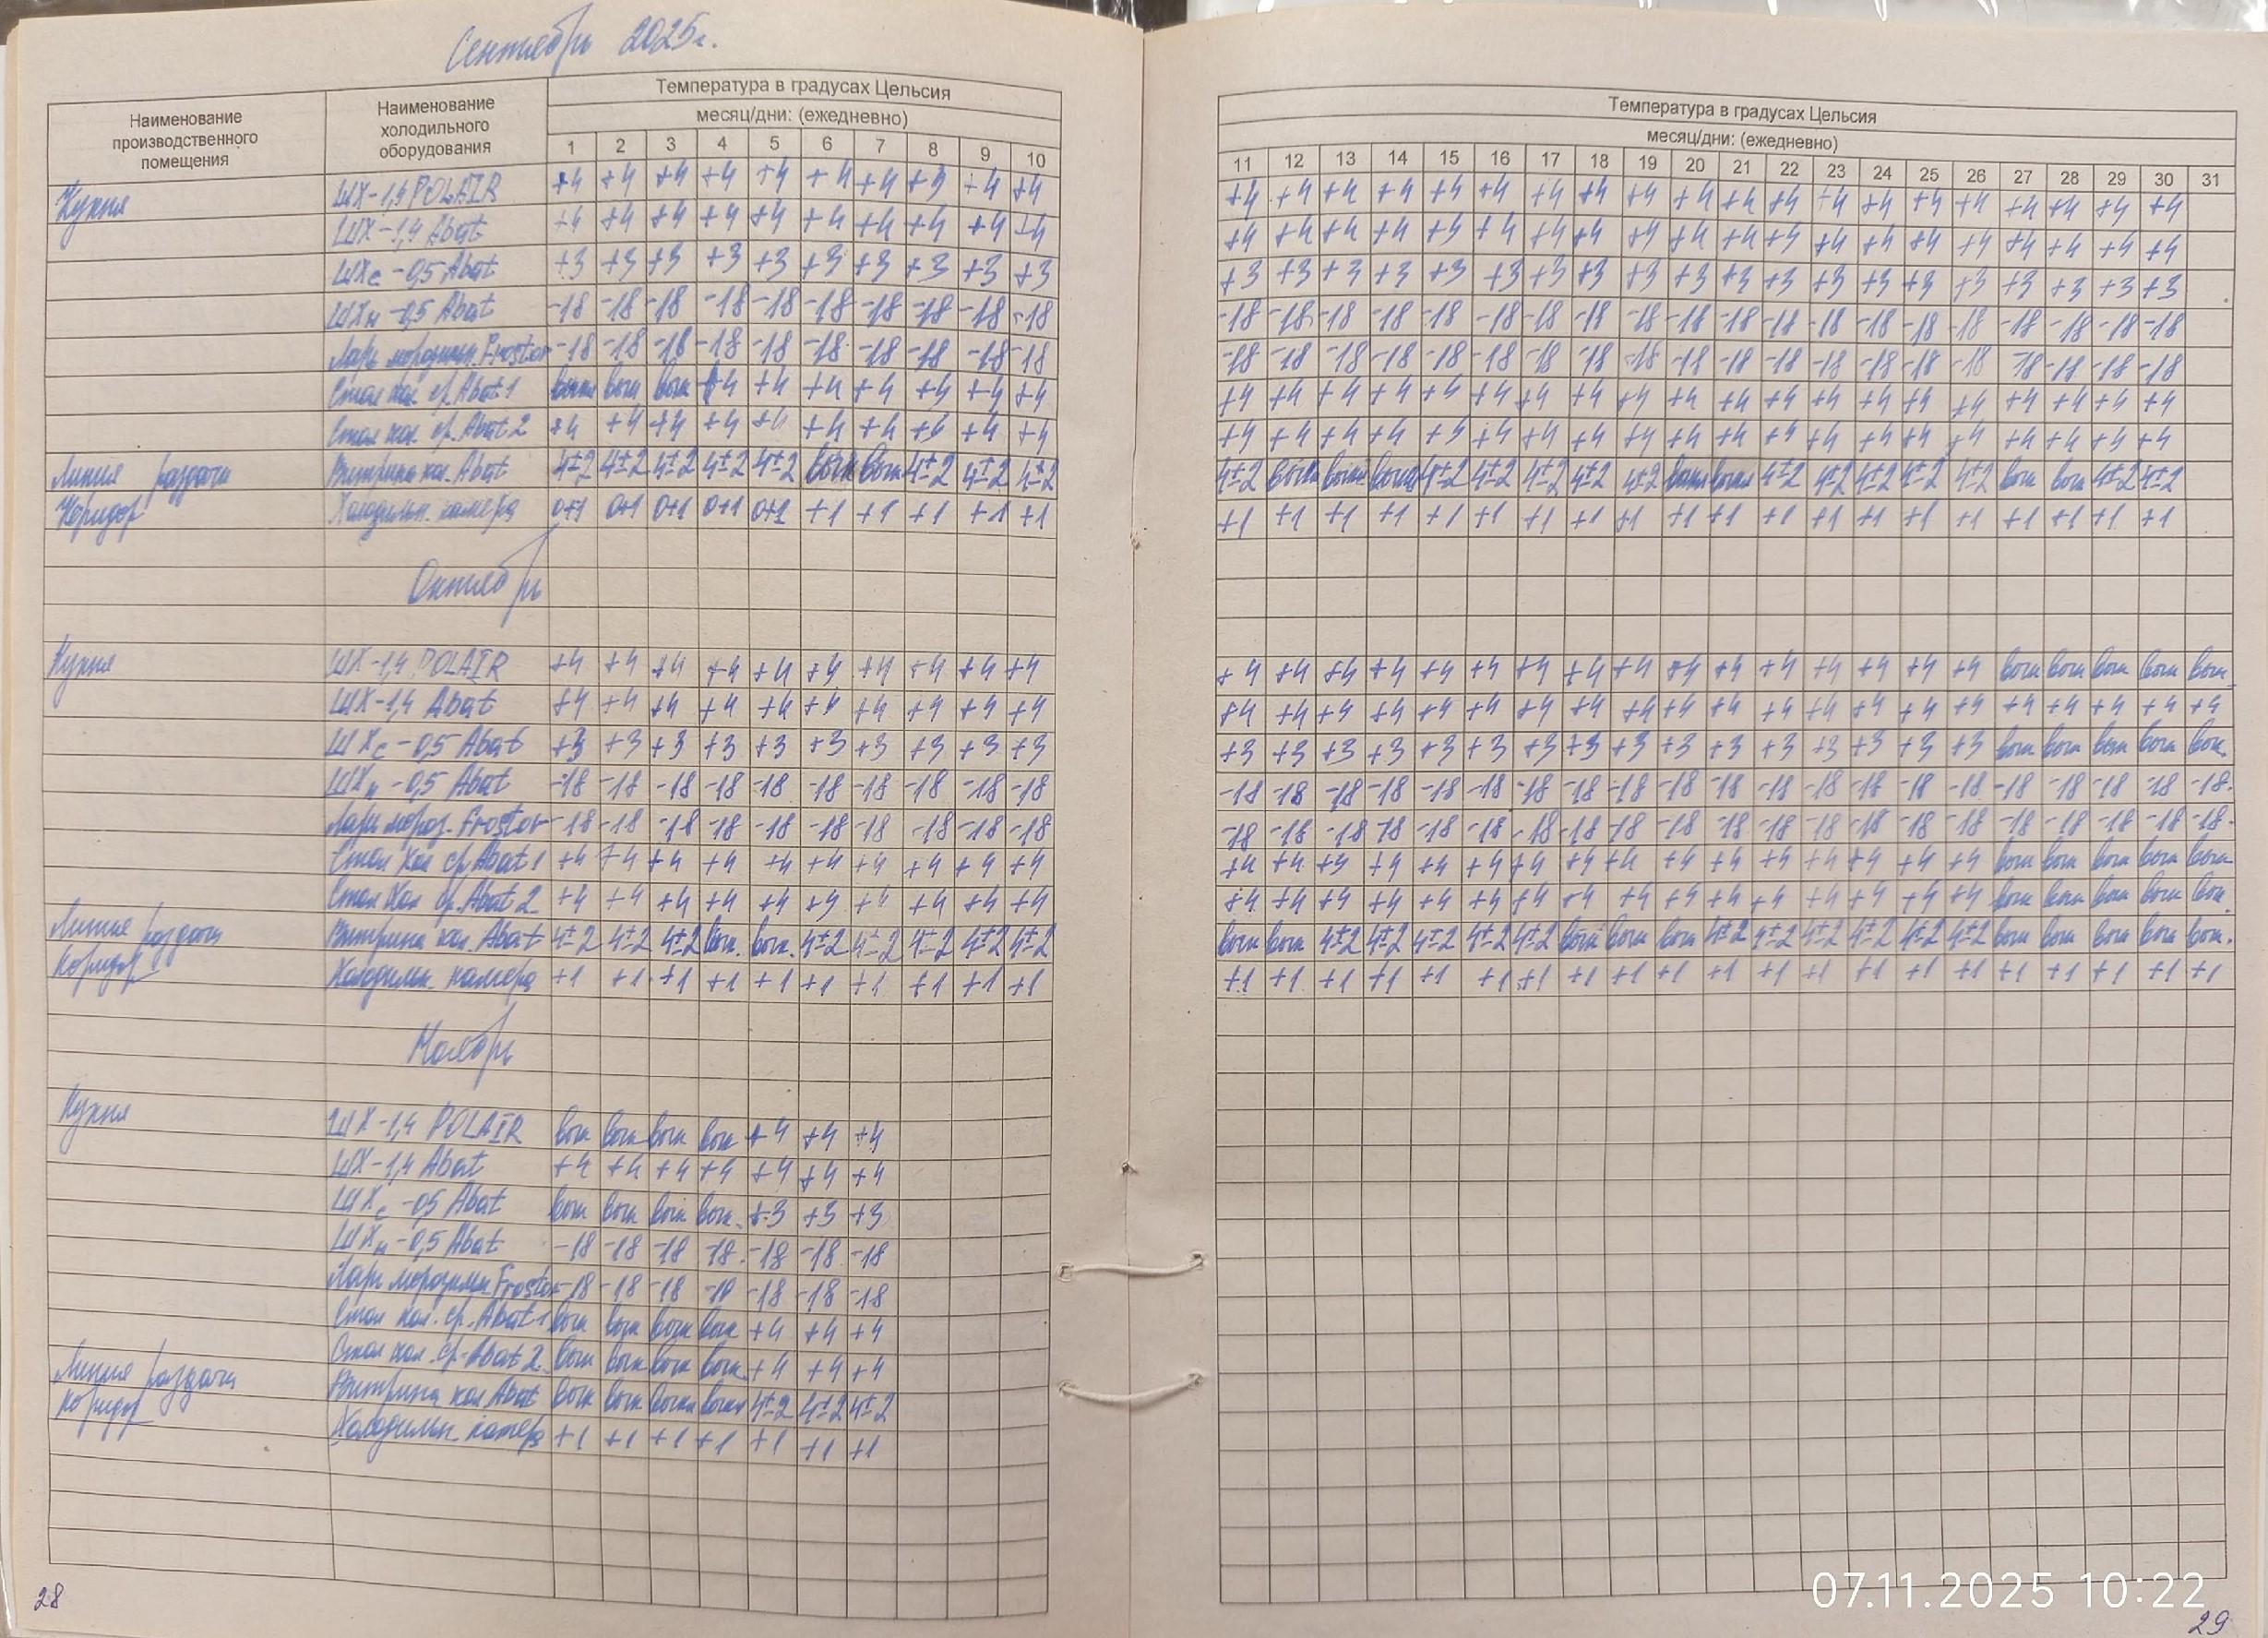 Сентябрь 2025г.
Наименование производственного помещения
Наименование холодильного оборудования
Температура в градусах Цельсия
месяц/дни: (ежедневно)
1 2 3 4 5 6 7 8 9 10
Температура в градусах Цельсия
месяц/дни: (ежедневно)
11 12 13 14 15 16 17 18 19 20 21 22 23 24 25 26 27 28 29 30 31
Кухня ШХ-1,4 POLAIR +4 +4 +4 +4 +4 +4 +4 +3 +4 +4 +4 +4 +4 +4 +4 +4 +4 +4 +4 +4 +4 +4 +4 +4 +4 +4 +4 +4 +4 +4
ШХ-1,4 Abat +4 +4 +4 +4 +4 +4 +4 +4 +4 +4 +4 +4 +4 +4 +4 +4 +4 +4 +4 +4 +4 +4 +4 +4 +4 +4 +4 +4 +4 +4
ШХс-0,5 Abat +3 +3 +3 +3 +3 +3 +3 +3 +3 +3 +3 +3 +3 +3 +3 +3 +3 +3 +3 +3 +3 +3 +3 +3 +3 +3 +3 +3 +3 +3
ШХн-0,5 Abat -18 -18 -18 -18 -18 -18 -18 -18 -18 -18 -18 -18 -18 -18 -18 -18 -18 -18 -18 -18 -18 -18 -18 -18 -18 -18 -18 -18 -18 -18
Ларь морозильн. Frostor -18 -18 -18 -18 -18 -18 -18 -18 -18 -18 -18 -18 -18 -18 -18 -18 -18 -18 -18 -18 -18 -18 -18 -18 -18 -18 -18 -18 -18 -18
Стол хол. ср. Abat 1 выкл выкл выкл +4 +4 +4 +4 +4 +4 +4 +4 +4 +4 +4 +4 +4 +4 +4 +4 +4 +4 +4 +4 +4 +4 +4 +4 +4 +4 +4
Стол хол. ср. Abat 2 +4 +4 +4 +4 +4 +4 +4 +4 +4 +4 +4 +4 +4 +4 +4 +4 +4 +4 +4 +4 +4 +4 +4 +4 +4 +4 +4 +4 +4 +4
Линия раздачи Витрина хол. Abat 4±2 4±2 4±2 4±2 4±2 выкл выкл 4±2 4±2 4±2 4±2 выкл выкл выкл 4±2 4±2 4±2 4±2 4±2 выкл выкл 4±2 4±2 4±2 4±2 4±2 выкл выкл 4±2 4±2
Коридор Холодильн. камера 0+1 0+1 0+1 0+1 0+1 +1 +1 +1 +1 +1 +1 +1 +1 +1 +1 +1 +1 +1 +1 +1 +1 +1 +1 +1 +1 +1 +1 +1 +1 +1
Октябрь
Кухня ШХ-1,4 POLAIR +4 +4 +4 +4 +4 +4 +4 +4 +4 +4 +4 +4 +4 +4 +4 +4 +4 +4 +4 +4 +4 +4 +4 +4 +4 +4 выкл выкл выкл выкл выкл.
ШХ-1,4 Abat +4 +4 +4 +4 +4 +4 +4 +4 +4 +4 +4 +4 +4 +4 +4 +4 +4 +4 +4 +4 +4 +4 +4 +4 +4 +4 +4 +4 +4 +4 +4
ШХс-0,5 Abat +3 +3 +3 +3 +3 +3 +3 +3 +3 +3 +3 +3 +3 +3 +3 +3 +3 +3 +3 +3 +3 +3 +3 +3 +3 +3 выкл выкл выкл выкл выкл.
ШХн-0,5 Abat -18 -18 -18 -18 -18 -18 -18 -18 -18 -18 -18 -18 -18 -18 -18 -18 -18 -18 -18 -18 -18 -18 -18 -18 -18 -18 -18 -18 -18 -18 -18.
Ларь мороз. Frostor -18 -18 -18 -18 -18 -18 -18 -18 -18 -18 -18 -18 -18 -18 -18 -18 -18 -18 -18 -18 -18 -18 -18 -18 -18 -18 -18 -18 -18 -18 -18.
Стол хол ср. Abat 1 +4 +4 +4 +4 +4 +4 +4 +4 +4 +4 +4 +4 +3 +4 +4 +4 +4 +4 +4 +4 +4 +4 +4 +4 +4 +4 выкл выкл выкл выкл выкл
Стол хол ср. Abat 2 +4 +4 +4 +4 +4 +4 +4 +4 +4 +4 +4 +4 +4 +4 +4 +4 +4 +4 +4 +4 +4 +4 +4 +4 +4 +4 выкл выкл выкл выкл выкл.
Линия раздачи Витрина хол. Abat 4±2 4±2 4±2 выкл. выкл. 4±2 4±2 4±2 4±2 4±2 выкл выкл 4±2 4±2 4±2 4±2 4±2 выкл выкл выкл 4±2 4±2 4±2 4±2 4±2 4±2 выкл выкл выкл выкл выкл.
Коридор Холодильн. камера +1 +1 +1 +1 +1 +1 +1 +1 +1 +1 +1 +1 +1 +1 +1 +1 +1 +1 +1 +1 +1 +1 +1 +1 +1 +1 +1 +1 +1 +1 +1
Ноябрь
Кухня ШХ-1,4 POLAIR выкл выкл выкл выкл +4 +4 +4
ШХ-1,4 Abat +4 +4 +4 +4 +4 +4 +4
ШХс-05 Abat выкл выкл выкл выкл. +3 +3 +3
ШХн-0,5 Abat -18 -18 -18 -18 -18 -18 -18
Ларь морозильн Frostor -18 -18 -18 -18 -18 -18 -18
Стол хол. ср. Abat 1 выкл выкл выкл выкл +4 +4 +4
Стол хол. ср. Abat 2 выкл выкл выкл выкл +4 +4 +4
Линия раздачи Витрина хол Abat выкл выкл выкл выкл 4±2 4±2 4±2
Коридор Холодильн. камера +1 +1 +1 +1 +1 +1 +1
28
07.11.2025 10:22
29